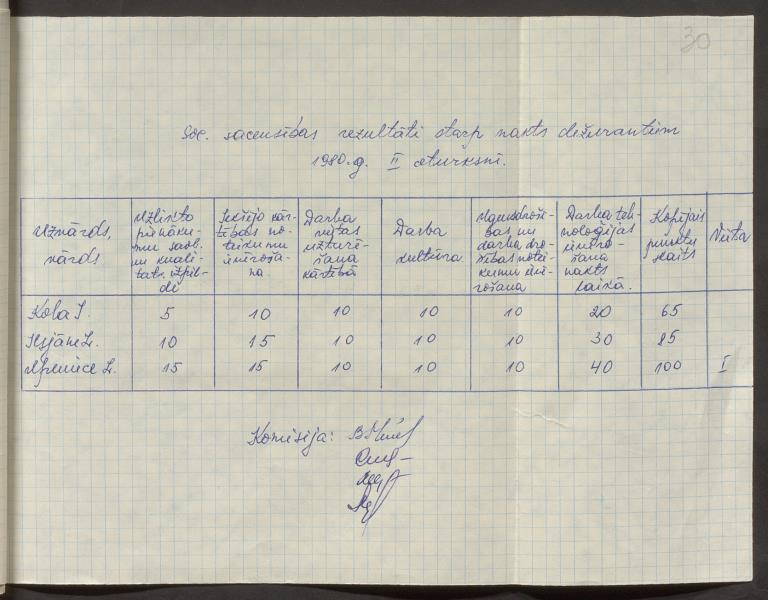 30
Soc. sacensības rezultāti starp nakts dežurantiem
1980.g. II ceturksnī.
Uzvārds, vārds
Uzlikto pienāku-mu savl. un kvali-tatv. izpil-de
Iekšējo kār-tības no-teikumu ievēroša-na
Darba vietas uzturē-šana kārtībā
Darba kultūra
Ugunsdroší-bas un darba dro-šības notei-kumu ie-vērošana
Darba teh-noloģijas ievēro-šana nakts laikā.
Kopējais punktu skaits
Vieta
Koba I. 5 10 10 10 10 20 65
Iesjāne L. 10 15 10 10 10 30 85
Apeniece L. 15 15 10 10 10 40 100 I
Komisija: